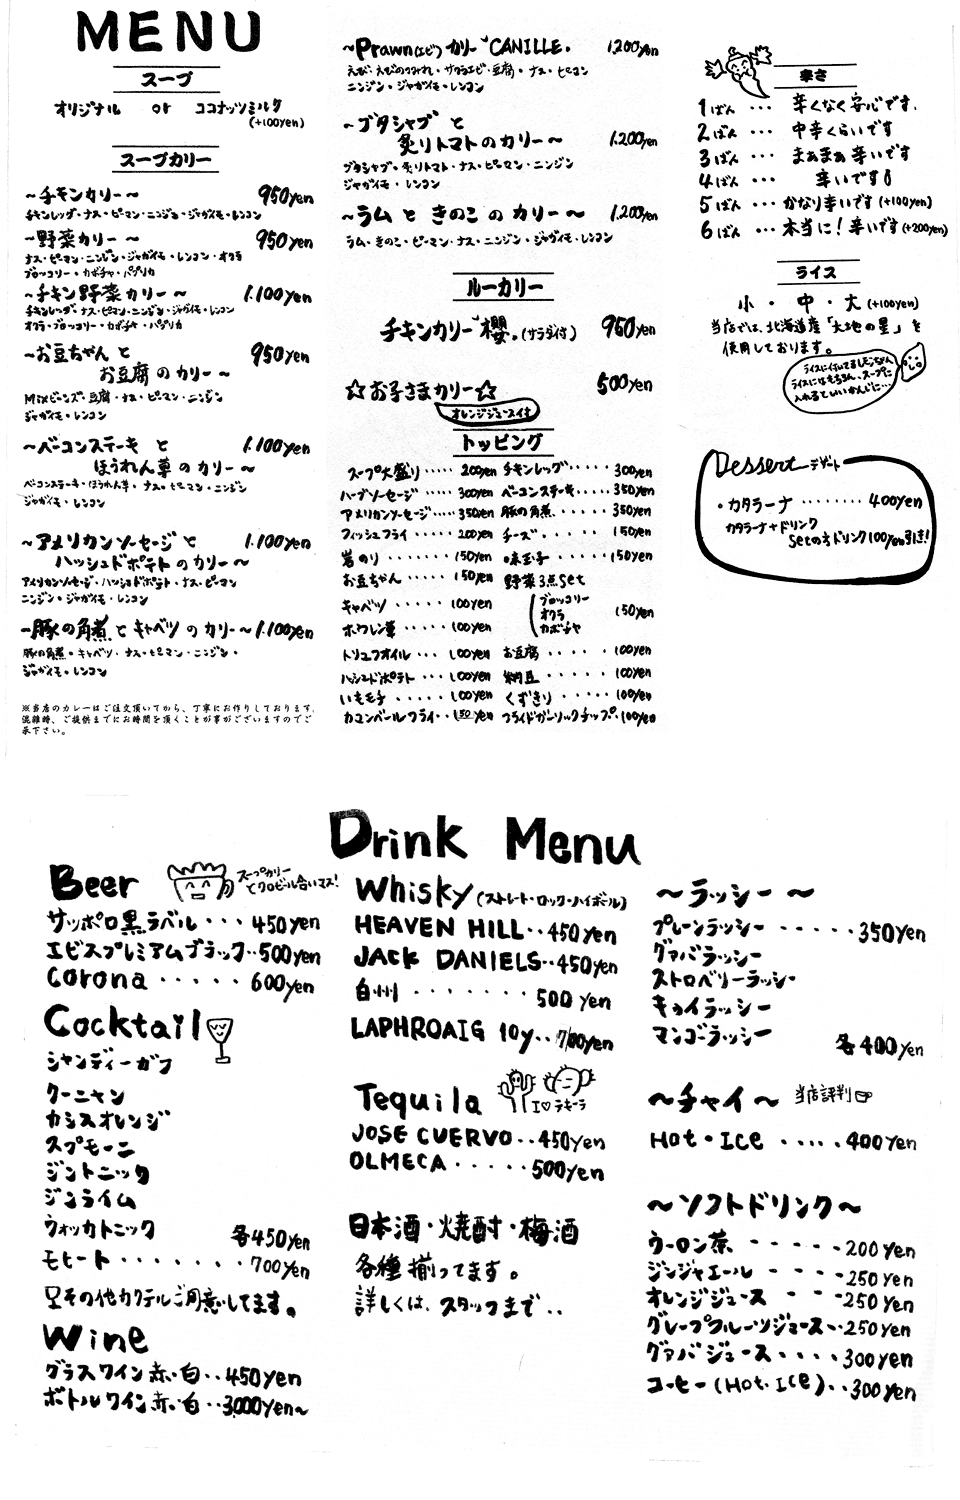 MENU
スープ
オリジナル or ココナッツミルク
(+100yen)
スープカリー
〜チキンカリー〜 950yen
チキンレッグ・ナス・ピーマン・ニンジン・ジャガイモ・レンコン
〜野菜カリー〜 950yen
ナス・ピーマン・ニンジン・ジャガイモ・レンコン・オクラ
ブロッコリー・カボチャ・パプリカ
〜チキン野菜カリー〜 1.100yen
チキンレッグ・ナス・ピーマン・ニンジン・ジャガイモ・レンコン
オクラ・ブロッコリー・カボチャ・パプリカ
〜お豆ちゃんと 950yen
お豆腐のカリー〜
Mixビーンズ・豆腐・ナス・ピーマン・ニンジン
ジャガイモ・レンコン
〜ベーコンステーキ と 1.100yen
ほうれん草のカリー〜
ベーコンステーキ・ほうれん草・ナス・ピーマン・ニンジン
ジャガイモ・レンコン
〜アメリカンソーセージと 1.100yen
ハッシュドポテトのカリー〜
アメリカンソーセージ・ハッシュドポテト・ナス・ピーマン
ニンジン・ジャガイモ・レンコン
〜豚の角煮とキャベツのカリー〜 1.100yen
豚の角煮・キャベツ・ナス・ピーマン・ニンジン・
ジャガイモ・レンコン
※当店のカレーはご注文頂いてから、丁寧にお作りしております。
混雑時、ご提供までにお時間を頂くことが事がございますのでご
承下さい。
〜Prawn(エビ)カリー"CANILLE. 1.200yen
えび・えびのつみれ・サクラエビ・豆腐・ナス・ピーマン
ニンジン・ジャガイモ・レンコン
〜ブタシャブと
炙りトマトのカリー〜 1.200yen
ブタシャブ・炙りトマト・ナス・ピーマン・ニンジン
ジャガイモ・レンコン
〜ラムときのこのカリー〜 1.200yen
ラム・きのこ・ピーマン・ナス・ニンジン・ジャガイモ・レンコン
ルーカリー
チキンカリー"櫻。(サラダ付) 950yen
☆お子さまカリー☆ 500yen
オレンジジュース付
トッピング
スープ大盛り・・・・・200yen チキンレッグ・・・・・300yen
ハーブソーセージ・・・・・300yen ベーコンステーキ・・・・・350yen
アメリカンソーセージ・・・・・350yen 豚の角煮・・・・・350yen
フィッシュフライ・・・・・200yen チーズ・・・・・150yen
岩のり・・・・・・150yen 味玉子・・・・・150yen
お豆ちゃん・・・・・150yen 野菜3点set
キャベツ・・・・・100yen ブロッコリー
オクラ 150yen
ホウレン草・・・・・100yen カボチャ
トリュフオイル・・・100yen お豆腐・・・・・100yen
ハッシュドポテト・・・100yen 納豆・・・・・100yen
いももち・・・・・100yen くずきり・・・・・100yen
カマンベールフライ・・150yen フライドガーリックチップ・・100yen
辛さ
1ばん ・・・ 辛くなく安心です.
2ばん ・・・ 中辛くらいです
3ばん ・・・ まぁまぁ辛いです
4ばん ・・・ 辛いです
5ばん ・・・ かなり辛いです(+100yen)
6ばん ・・・ 本当に!辛いです(+200yen)
ライス
小・中・大(+100yen)
当店では、北海道産「大地の星」を
使用しております。
ライスに付いてるレモンちゃん
ライスにはもちろん、スープに
入れるといいかんじに...
Dessert デザート
・カタラーナ・・・・・・・・400yen
カタラーナ+ドリンク
setの方ドリンク100yen引き!
Drink Menu
Beer
スープカリー
と クロビール合いマス!
サッポロ黒ラベル・・・450yen
エビスプレミアムブラック・・500yen
Corona・・・・・600yen
Cocktail
シャンディーガフ
クーニャン
カシスオレンジ
スプモーニ
ジントニック
ジンライム
ウォッカトニック 各450yen
モヒート・・・・・・・700yen
その他カクテルご用意してます。
Wine
グラスワイン赤・白・・450yen
ボトルワイン赤・白・・3,000yen〜
Whisky(ストレート・ロック・ハイボール)
HEAVEN HILL・・450yen
JACK DANIELS・・450yen
白州・・・・・・・500yen
LAPHROAIG 10y・・700yen
Tequila
I♡テキーラ
JOSE CUERVO・・450yen
OLMECA・・・・・500yen
日本酒・焼酎・梅酒
各種揃ってます。
詳しくは、スタッフまで・・
〜ラッシー〜
プレーンラッシー・・・・・350yen
グァバラッシー
ストロベリーラッシー
キゥイラッシー
マンゴーラッシー
各400yen
〜チャイ〜 当店評判
Hot・Ice・・・・・400yen
〜ソフトドリンク〜
ウーロン茶・・・・・200yen
ジンジャエール・・・・250yen
オレンジジュース・・・250yen
グレープフルーツジュース・・250yen
グァバジュース・・・・300yen
コーヒー(Hot・Ice)・・300yen